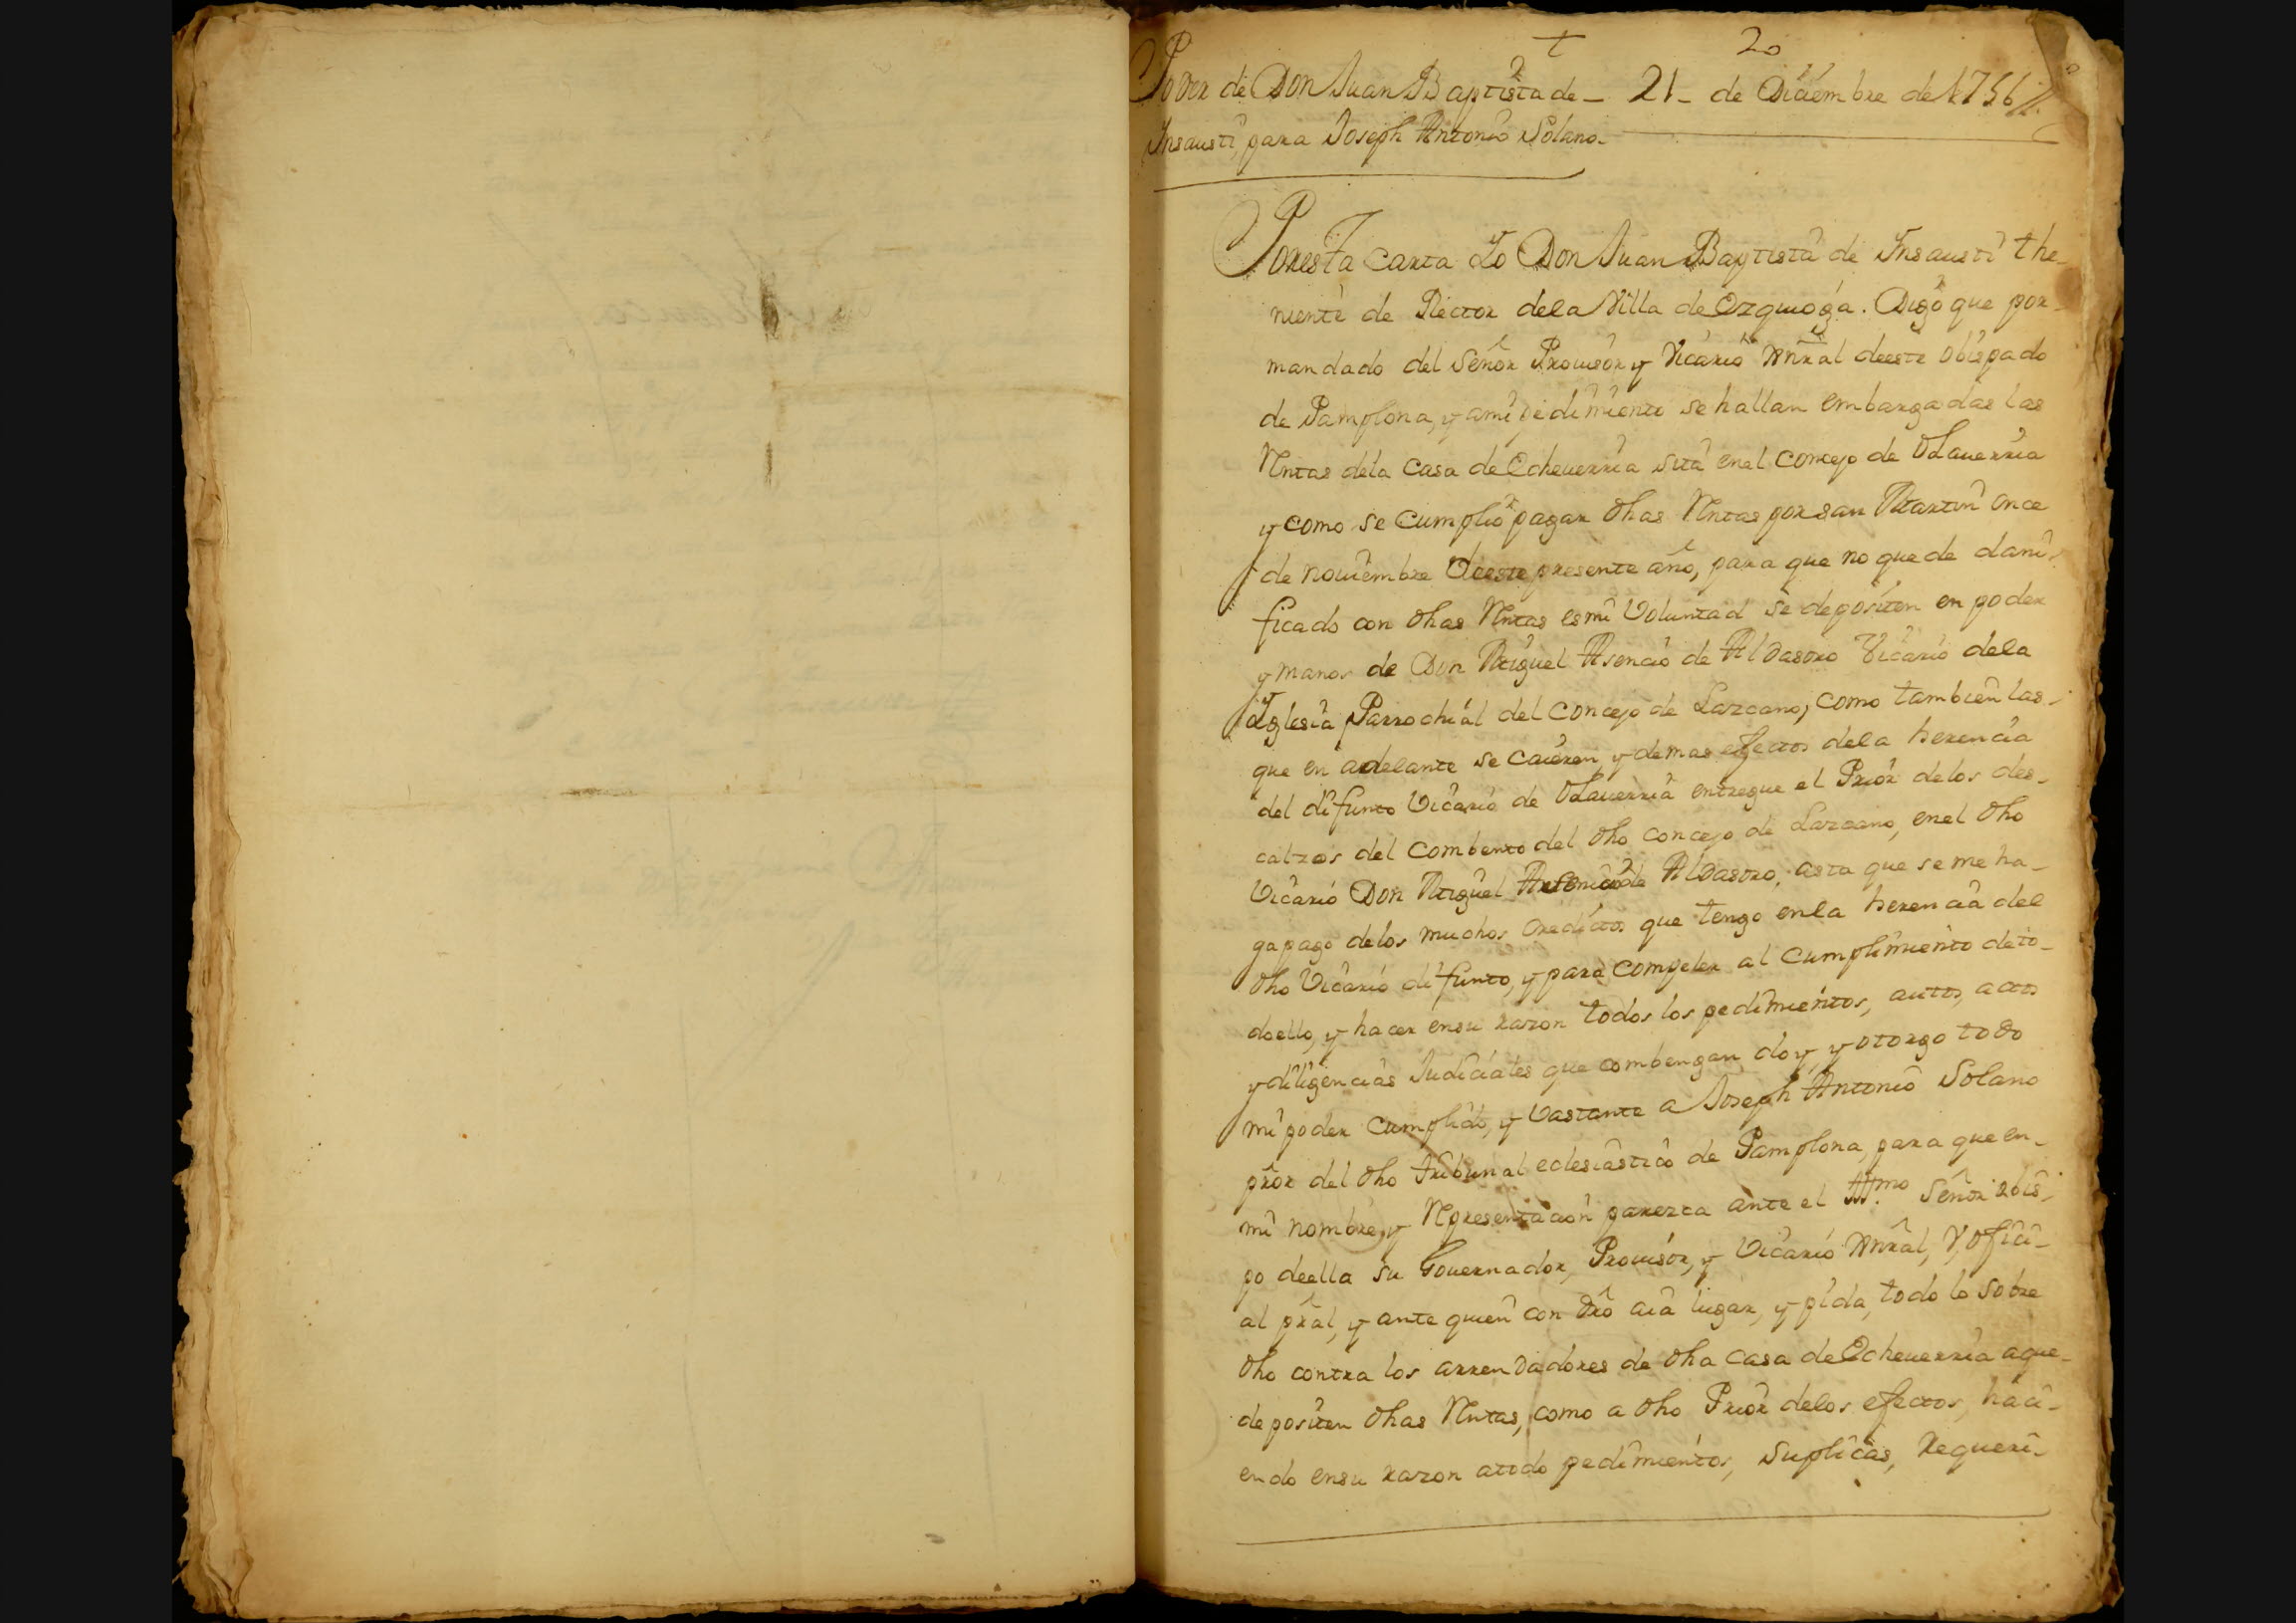 t 20
Poder de Don Juan Baptista de - 21 - de Diciembre de 1756
Insausti, para Joseph Antonio Solano.
Poresta carta Yo Don Juan Baptista de Insausti the-
niente de Rector dela Villa de Ezquioga. Digo que por
mandado del Señor Provisor y Vicario Gñral deeste obispado
de Pamplona, y ami pedimiento se hallan embargadas las
Rentas dela casa de Echeverria sita enel concejo de Olaverria
y como se cumplio pagar dhas Rentas por san Martin once
de noviembre deeste presente año, para que no quede dani-
ficado con dhas Rentas es mi voluntad se depositen en poder
y manos de Don Miguel Asencio de Aldasoro Vicario dela
Yglesia Parrochial del concejo de Lazcano, como tambien las
que en adelante se caieren y demas efectos dela herencia
del difunto Vicario de Olaverria entregue el Prior delos des-
calzos del combento del dho concejo de Lazcano, enel dho
Vicario Don Miguel Asencio de Aldasoro, asta que se me ha-
ga pago delos muchos creditos que tengo enla herencia del
dho Vicario difunto, y para compeler al cumplimiento deto-
doello, y hacer ensu razon todos los pedimientos, autos, actos
y diligencias Judiciales que combengan doy, y otorgo todo
mi poder cumplido, y vastante a Joseph Antonio Solano
pror del dho tribunal eclesiastico de Pamplona, para que en
mi nombre, y Representacion parezca ante el Illmo Señor obis-
po deella su Governador, Provisor, y Vicario Gñral, y, ofici-
al pral, y ante quien con dro aia lugar, y pida, todo lo sobre
dho contra los arrendadores de dha casa de Echeverria aque
depositen dhas Rentas, como a dho Prior delos efectos, haci-
endo ensu razon atodo pedimientos, suplicas, requeri-